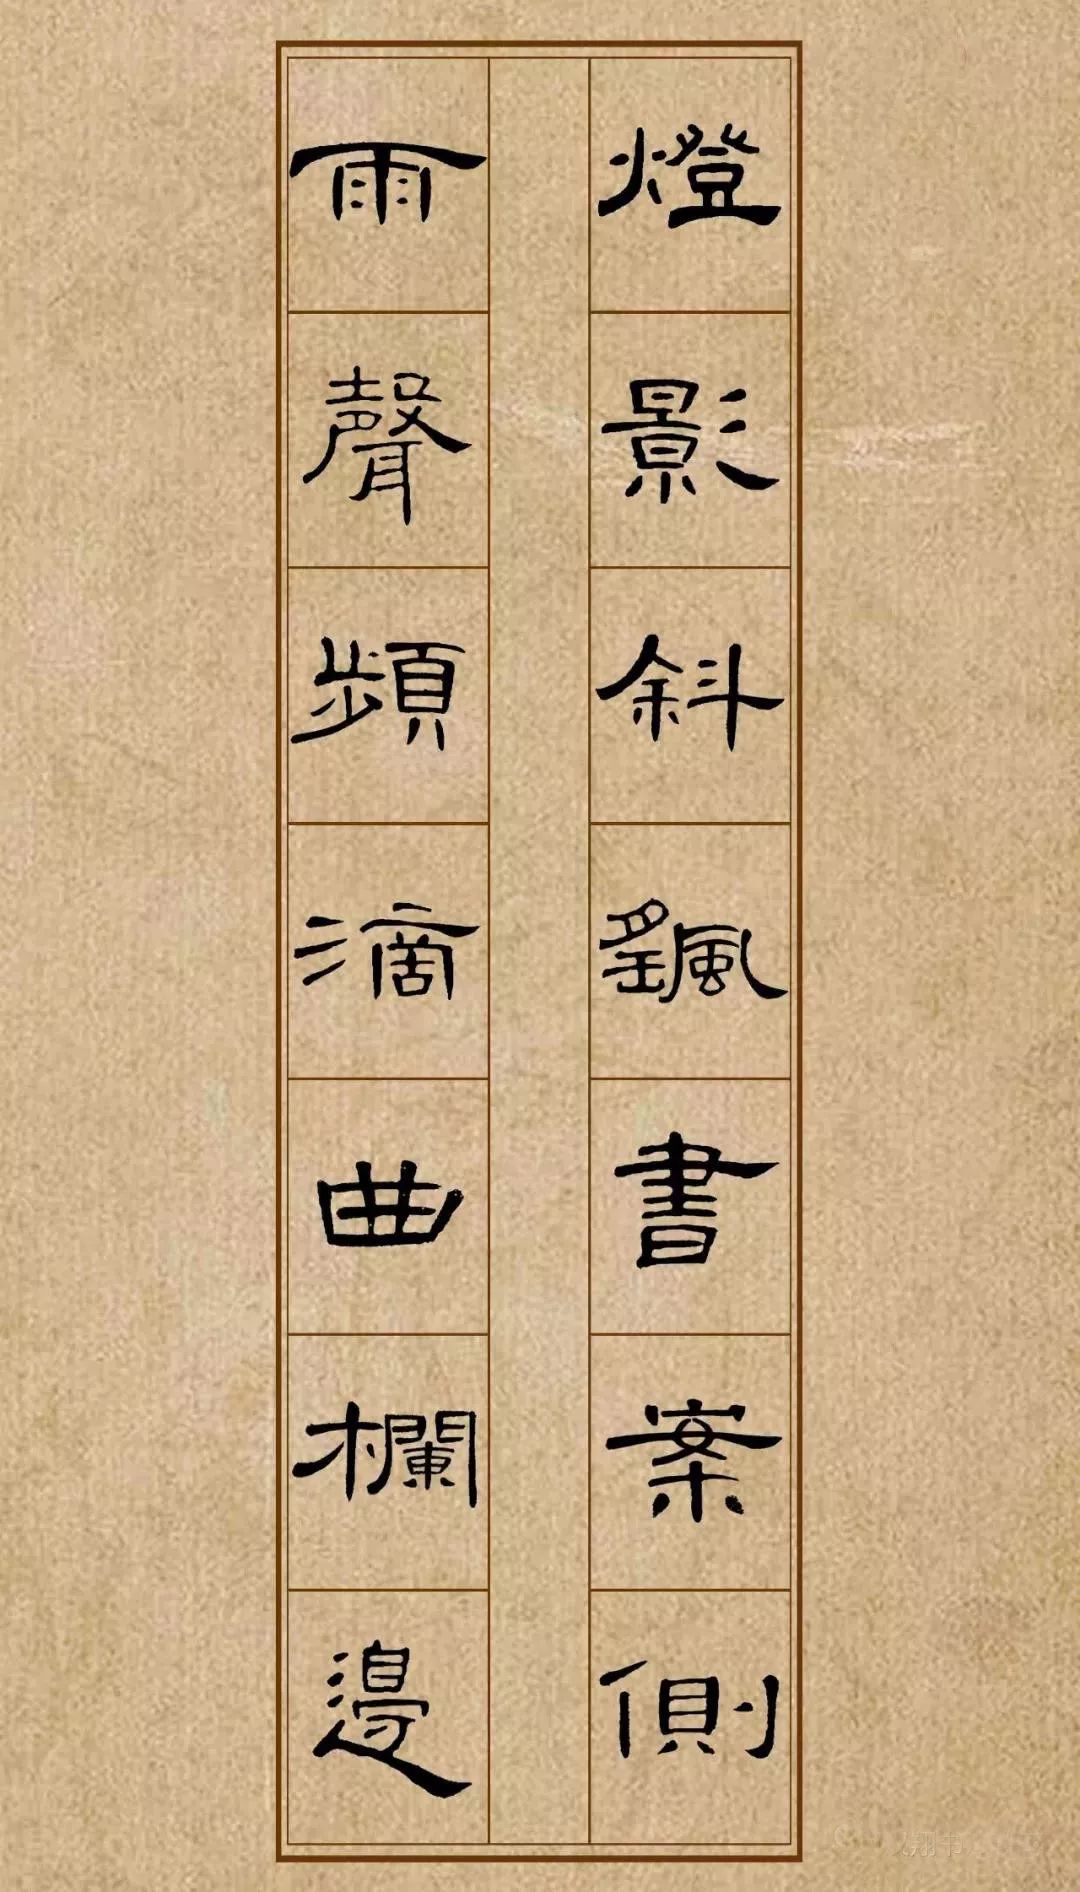 燈影斜飄書案側
雨聲頻滴曲欄邊